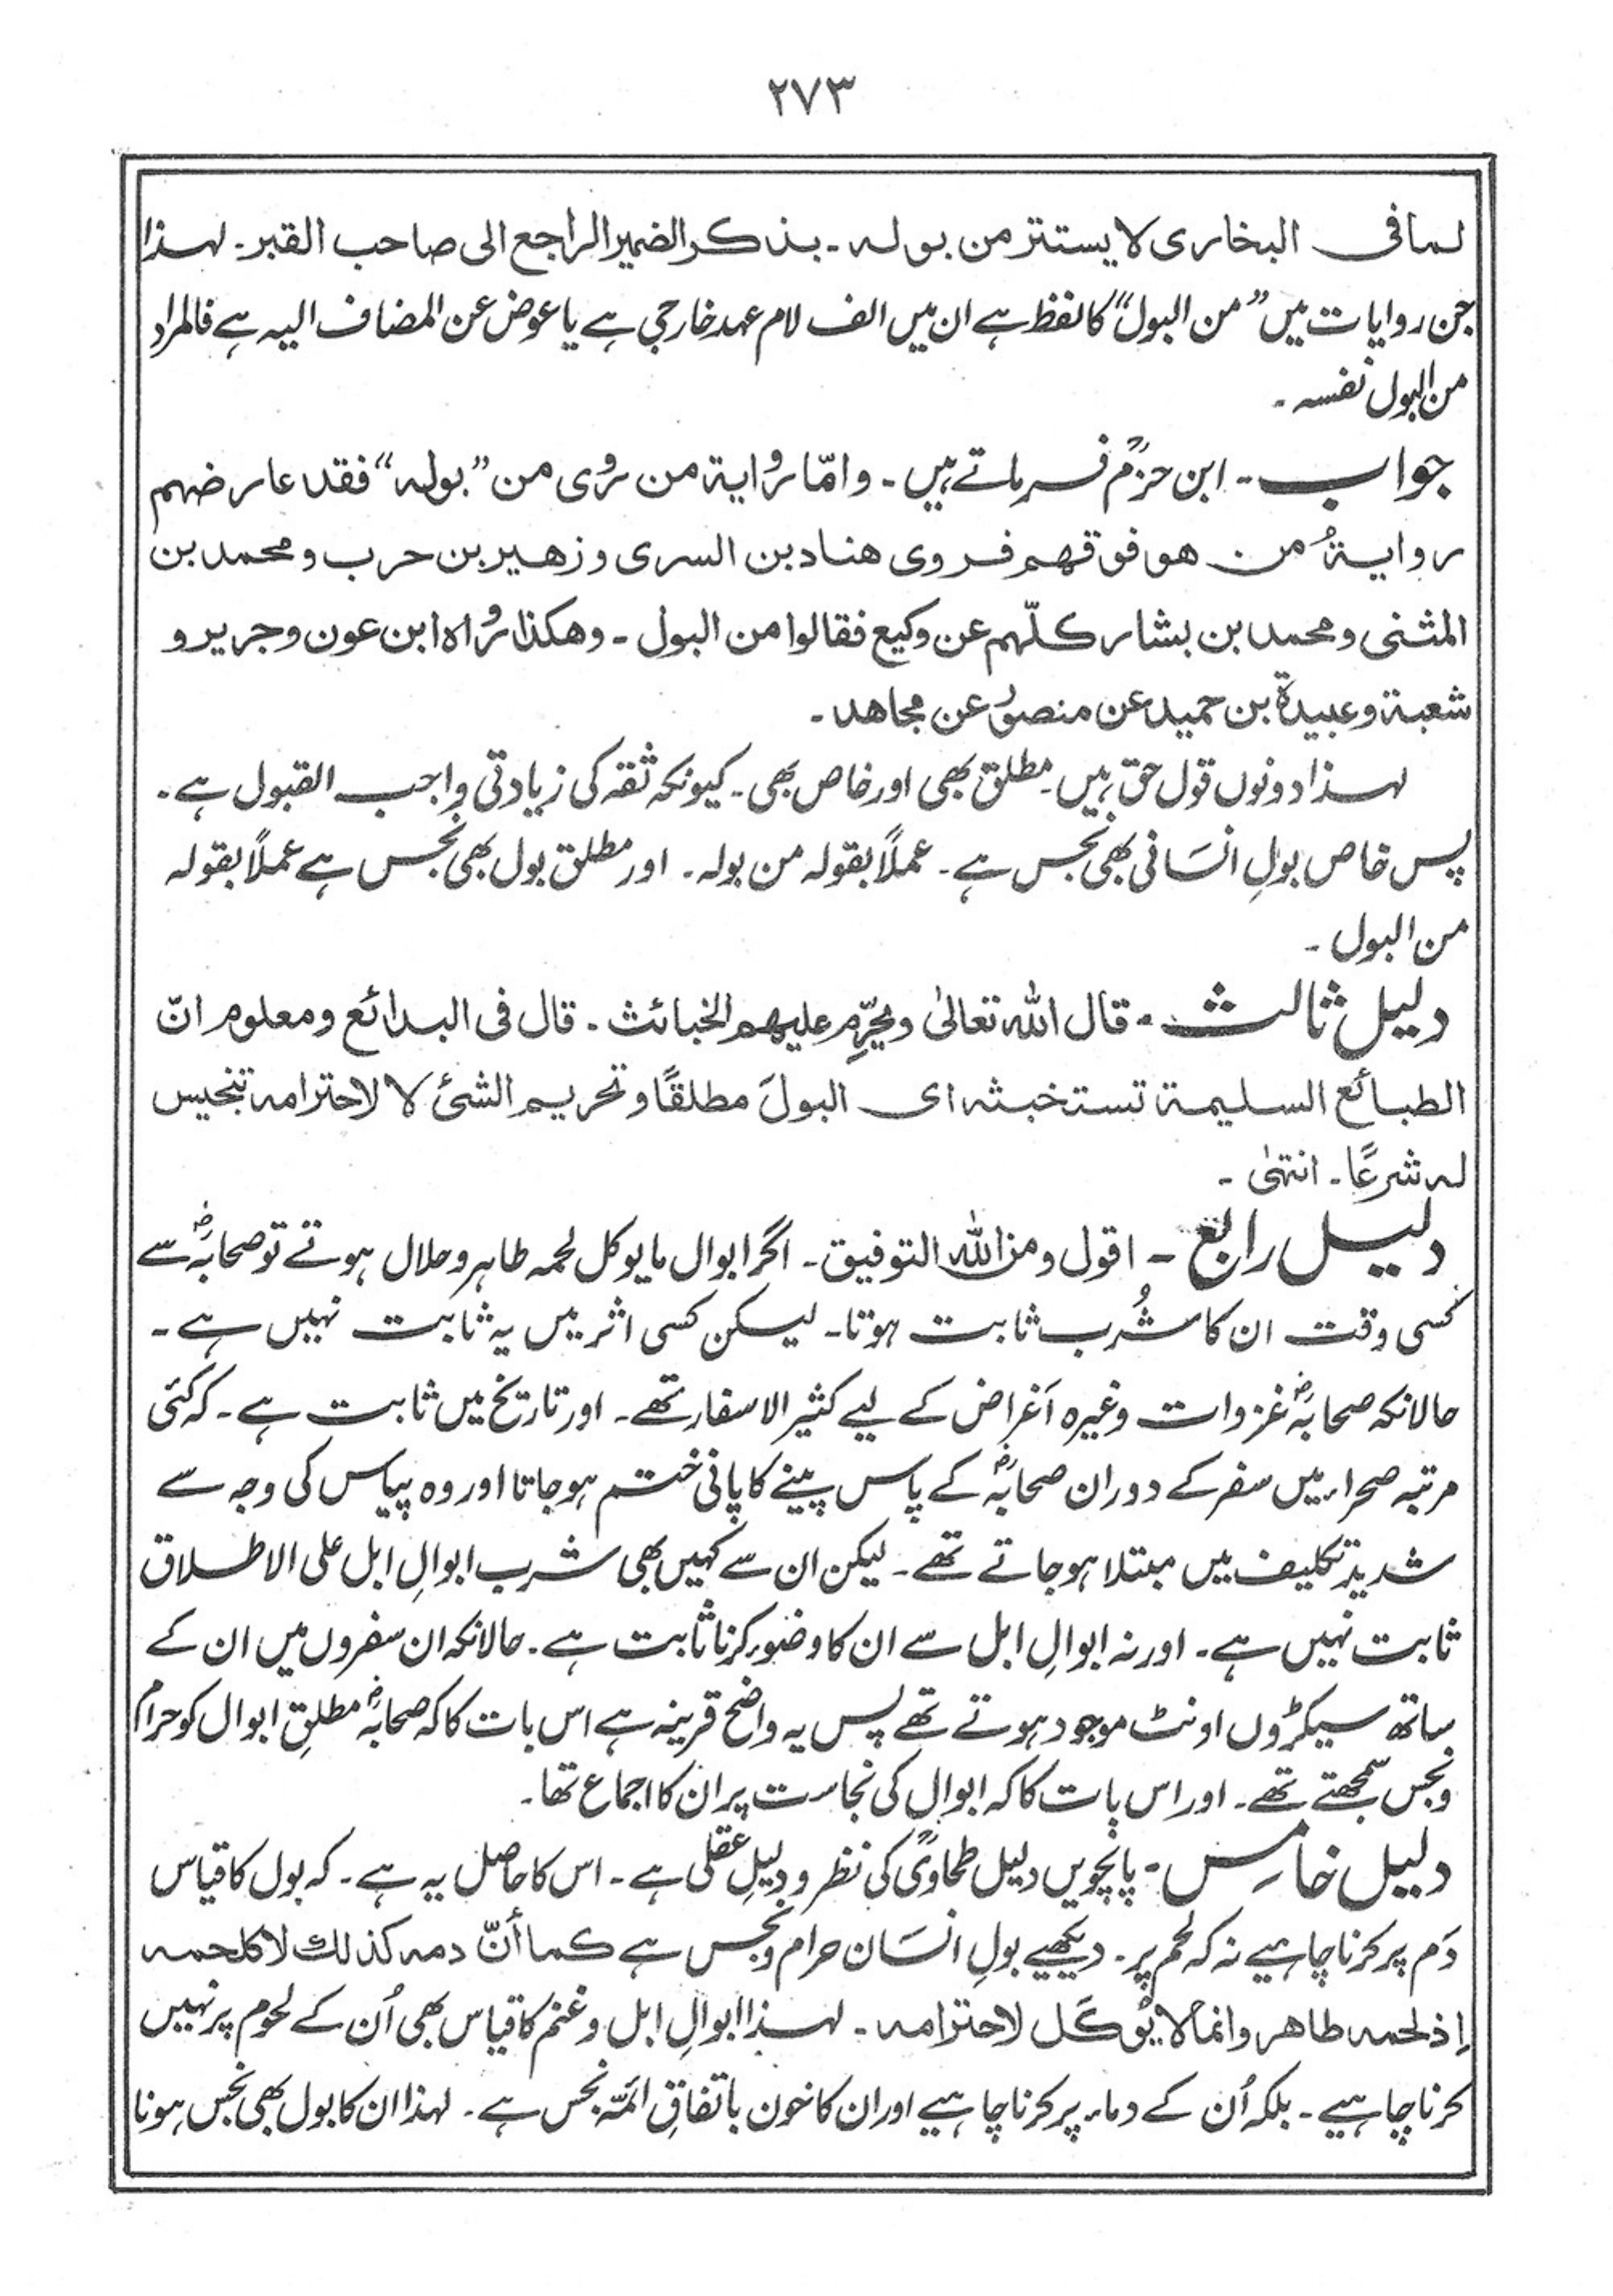 ۲۷۳
لما فی البخاری لا یستتر من بولہ ۔ بذکر الضمیر الراجع الی صاحب القبر ۔ لہذا
جن روایات میں ”من البول“ کا لفظ ہے ان میں الف لام عہد خارجی ہے یا عوض عن المضاف الیہ ہے فالمراد
من البول نفسہ ۔
جواب ۔ ابن حزمؒ فرماتے ہیں ۔ وامّا روایة من رویٰ من ”بولہ“ فقد عارضھم
روایةُ من ھو فوقھم فروی ھناد بن السری و زھیر بن حرب و محمد بن
المثنی و محمد بن بشار کلّھم عن وکیع فقالوا من البول ۔ وھکذا رواہ ابن عون و جریر و
شعبة و عبیدة بن حمید عن منصور عن مجاھد ۔
لہذا دونوں قول حق ہیں ۔ مطلق بھی اور خاص بھی ۔ کیونکہ ثقہ کی زیادتی واجب القبول ہے ۔
پس خاص بولِ انسانی بھی نجس ہے ۔ عملاً بقولہ من بولہ ۔ اور مطلق بول بھی نجس ہے عملاً بقولہ
من البول ۔
دلیل ثالث ۔ قال اللہ تعالیٰ ویحرّم علیھم الخبائث ۔ قال فی البدائع ومعلوم انّ
الطبائع السلیمة تستخبثہ ای البولَ مطلقًا و تحریم الشئ لا لاحترامہ تنجیس
لہ شرعًا ۔ انتہیٰ ۔
دلیل رابع ۔ اقول ومن اللہ التوفیق ۔ اگر ابوال ما یوکل لحمہ طاہر و حلال ہوتے تو صحابہؓ سے
کسی وقت ان کا شُرب ثابت ہوتا ۔ لیکن کسی اثر میں یہ ثابت نہیں ہے ۔
حالانکہ صحابہؓ غزوات وغیرہ اَغراض کے لیے کثیر الاسفار تھے ۔ اور تاریخ میں ثابت ہے ۔ کہ کئی
مرتبہ صحراء میں سفر کے دوران صحابہؓ کے پاس پینے کا پانی ختم ہوجاتا اور وہ پیاس کی وجہ سے
شدید تکلیف میں مبتلا ہوجاتے تھے ۔ لیکن ان سے کہیں بھی شرب ابوالِ ابل علی الاطلاق
ثابت نہیں ہے ۔ اور نہ ابوالِ ابل سے ان کا وضوء کرنا ثابت ہے ۔ حالانکہ ان سفروں میں ان کے
ساتھ سیکڑوں اونٹ موجود ہوتے تھے پس یہ واضح قرینہ ہے اس بات کا کہ صحابہؓ مطلقِ ابوال کو حرام
ونجس سمجھتے تھے ۔ اور اس بات کا کہ ابوال کی نجاست پر ان کا اجماع تھا ۔
دلیل خامس ۔ پانچویں دلیل طحاویؒ کی نظر و دلیلِ عقلی ہے ۔ اس کا حاصل یہ ہے ۔ کہ بول کا قیاس
دَم پر کرنا چاہیے نہ کہ لحم پر ۔ دیکھیے بولِ انسان حرام و نجس ہے کما أنّ دمہ کذلك لا کلحمہ
إذ لحمہ طاھر وانما لا یُؤکَل لاحترامہ ۔ لہذا ابوالِ ابل و غنم کا قیاس بھی اُن کے لحوم پر نہیں
کرنا چاہیے ۔ بلکہ اُن کے دماء پر کرنا چاہیے اور ان کا خون باتفاقِ ائمّہ نجس ہے ۔ لہذا ان کا بول بھی نجس ہونا